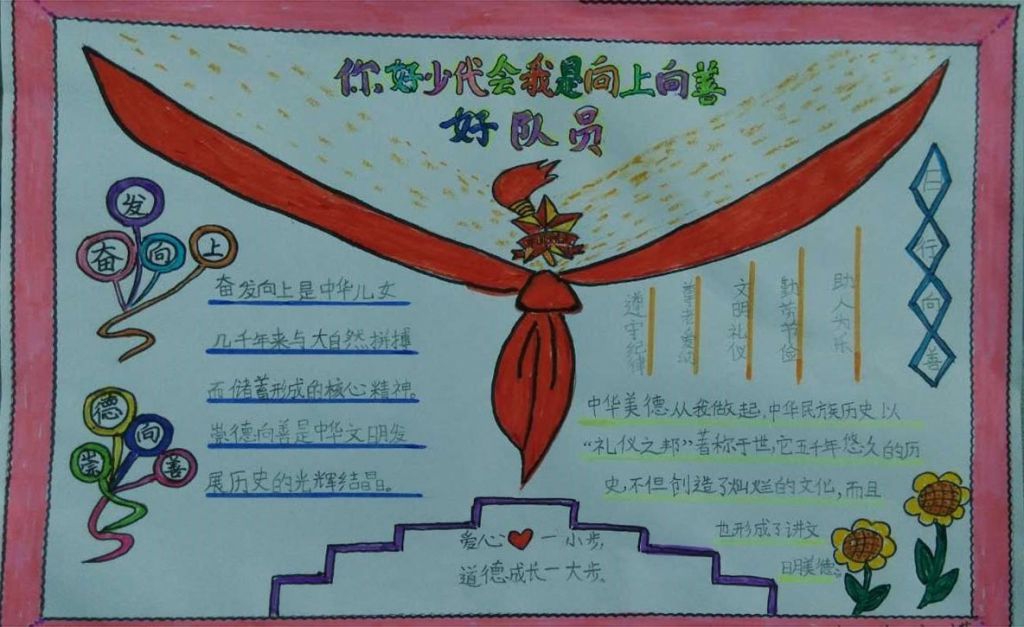 你好少代会我是向上向善
好队员
奋发向上
奋发向上是中华儿女
几千年来与大自然拼搏
而储蓄形成的核心精神。
崇德向善是中华文明发
展历史的光辉结晶。
崇德向善
遵守纪律
尊老爱幼
文明礼仪
勤劳节俭
助人为乐
日行向善
中华美德从我做起,中华民族历史以
“礼仪之邦”著称于世,它五千年悠久的历
史,不但创造了灿烂的文化,而且
也形成了讲文
明美德。
爱心一小步,
道德成长一大步。